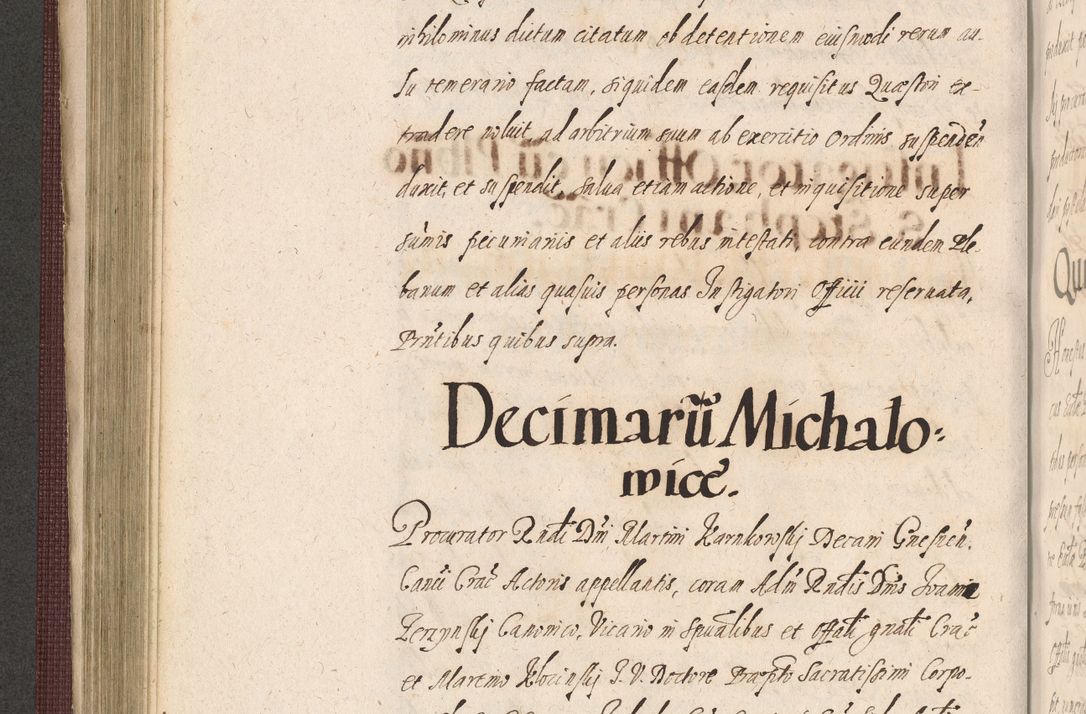 nihilominus dictum citatum ob detentionem eiusmodi rerum au-
su temerario factam, siquidem easdem requisitus Quæstori ex-
tradere noluit, ad arbitrium suum ab exercitio Ordinis suspenden
duxit, et suspendit, salua etiam actione, et inquisitione super
summis pecuniariis et aliis rebus intestati, contra eundem Ple-
banum et alias quasuis personas Instigatori Officii reseruata,
Prntibus quibus supra.
Decimarũ Michalo-
wice.
Procurator Rndi Dni Martini Karnkowskij Decani Gnesnen.
Canci Crac Actoris appellantis, coram Adm Rndis Dnis Joanne
Zerzynskij Canonico, Vicario in spualibus et Offali gnali Crac
et Martino Klocinskij J. V. Doctore Præpto Sacratissimi Corpo-